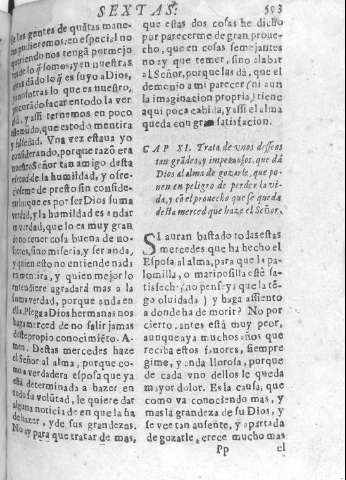 SEXTAS.
593
de las gentes de quãtas mane-
ras pudieremos, en especial no
queriendo nos tengã por mejo
de lo q̃ somos, y en nuestras
obras dãdo lo q̃ es suyo a Dios,
y a nosotras lo que es nuestro,
sacar en todo la ver
dad, y assi ternemos en poco
este mũdo, que es todo mentira
y falsedad. Vna vez estaua yo
considerando, porque razõ era
nuestro Señor tan amigo desta
virtud de la humildad, y ofre-
cioseme de presto sin conside-
rarlo que es por ser Dios suma
verdad, y la humildad es andar
en verdad, que lo es muy gran
de no tener cosa buena de no-
sotros, sino miseria, y ser nada,
y quien esto no entiende anda
en mentira, y quien mejor lo
entendiere agradarà mas a la
suma verdad, porque anda en
ella. Plega a Dios hermanas nos
haga merced de no salir jamas
deste propio conocimiẽto. A-
men. Destas mercedes haze
el Señor al alma, porque co-
mo a verdadera esposa que ya
està determinada a hazer en
todo su volũtad, le quiere dar
alguna noticia de en que la ha
de hazer, y de sus grandezas.
No ay para que tratar de mas,
que estas dos cosas he dicho
por parecerme de gran proue-
cho, que en cosas semejantes
no ay que temer, sino alabar
al Señor, porque las dà, que el
demonio a mi parecer (ni aun
la imaginacion propria) tiene
aqui poca cabida, y assi el alma
queda con gran satisfacion.
CAP XI. Trata de vnos desseos
tan grãdes, y impetuosos, que dà
Dios al alma de gozarle, que po-
nen en peligro de perder la vi-
da, y cõ el prouecho que se queda
desta merced que haze el Señor.
SI auran bastado todas estas
mercedes que ha hecho el
Esposo al alma, para que la pa-
lomilla, o mariposilla estè sa-
tisfecha (no penseys que la tẽ-
go oluidada) y haga assiento
a donde ha de morir? No por
cierto, antes està muy peor,
aunque aya muchos años que
reciba estos fauores, siempre
gime, y anda llorosa, porque
de cada vno dellos le queda
mayor dolor. Es la causa, que
como va conociendo mas, y
mas la grandeza de su Dios, y
se vee tan ausente, y apartada
de gozarle, crece mucho mas
Pp
el